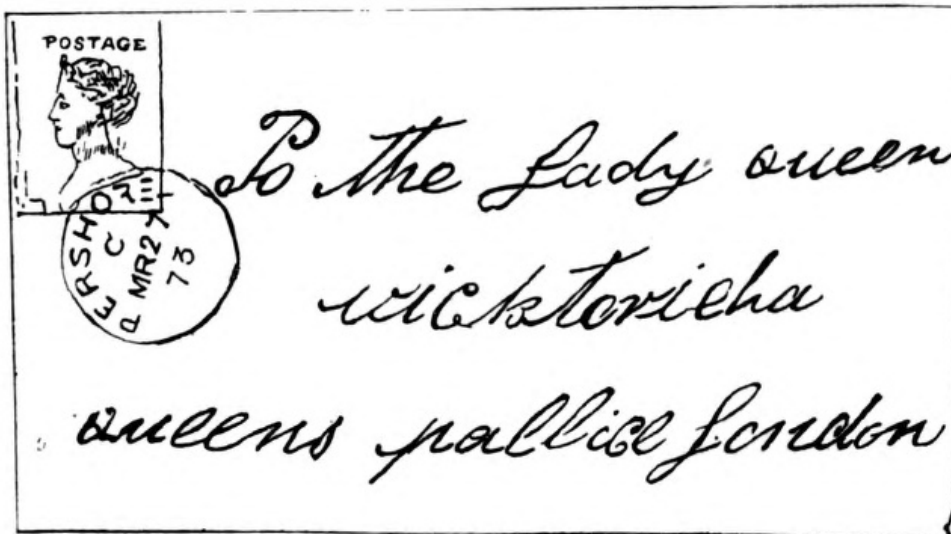 POSTAGE
PERSHORE
C
MR27
73
To the Lady queen
wicktorieha
queens pallice London